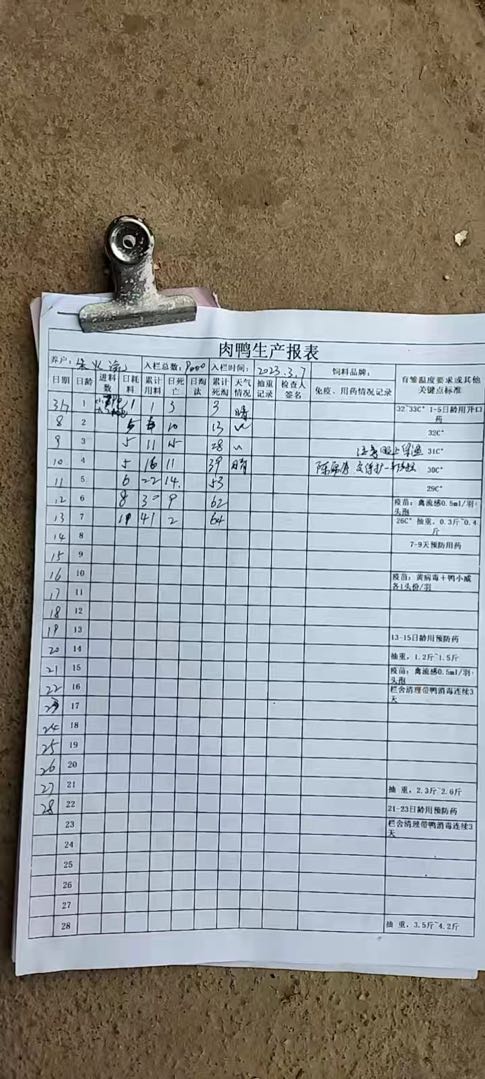 肉鸭生产报表
养户: 入栏总数: 入栏时间: 2023.3.7 饲料品牌: 育雏温度要求或其他关键点标准
日期 日龄 进料数 日耗料 累计用料 日死亡 日淘汰 累计死淘 天气情况 抽重记录 检查人签名 免疫、用药情况记录
1 1 3 3 晴 32~33C° 1-5日龄用开口药
8 2 5 10 13 32C°
9 3 5 11 15 28 31C°
10 4 5 16 11 39 晴 30C°
11 5 6 22 14 53 29C°
12 6 8 30 9 62 疫苗:禽流感0.5ml/羽·头孢
13 7 41 2 64 26C° 抽重,0.3斤~0.4斤
14 8 7-9天预防用药
15 9
16 10 疫苗:黄病毒+鸭小减各1头份/羽
17 11
18 12
19 13 13-15日龄用预防药
20 14 抽重,1.2斤~1.5斤
21 15 疫苗:禽流感0.5ml/羽·头孢
22 16 栏舍清理带鸭消毒连续3天
23 17
24 18
25 19
26 20
27 21 抽重,2.3斤~2.6斤
28 22 21-23日龄用预防药
23 栏舍清理带鸭消毒连续3天
24
25
26
27
28 抽重,3.5斤~4.2斤